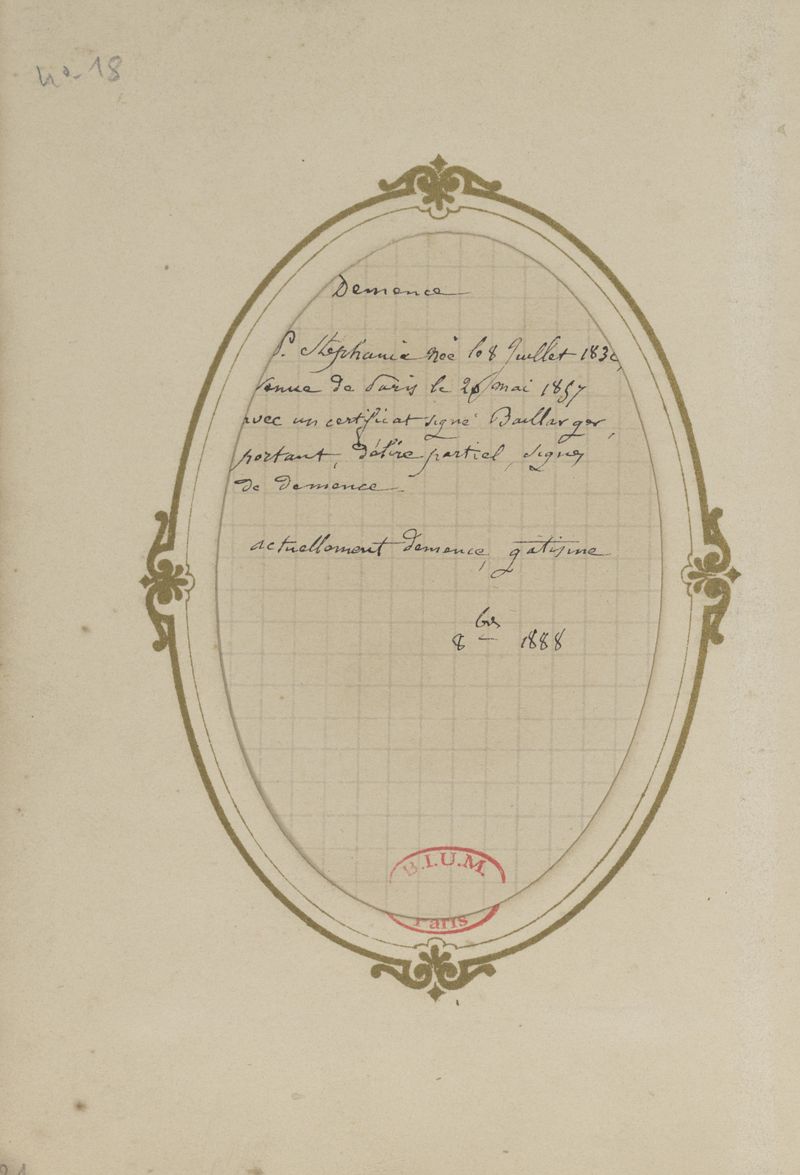 no 18
Demence
P. Stephanie née le 8 Juillet 183
venue de Paris le 26 mai 1857
avec un certificat signé Baillarger,
portant, délire partiel, signes
de demence
actuellement demence, gâtisme
8 bre 1888
B.I.U.M.
Paris